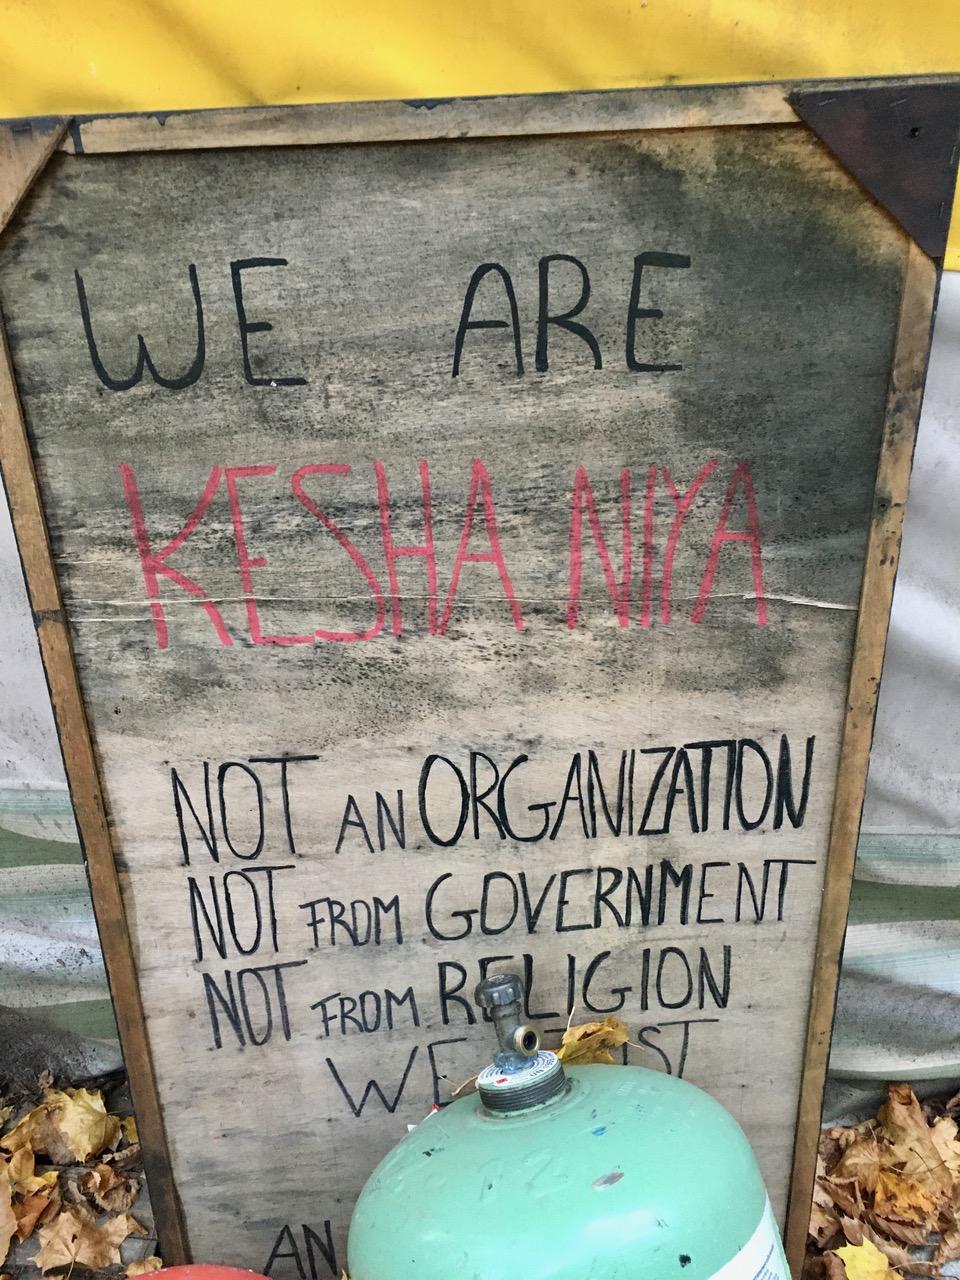 WE ARE
KESHA NIYA
NOT AN ORGANIZATION
NOT FROM GOVERNMENT
NOT FROM RELIGION
WE
AN